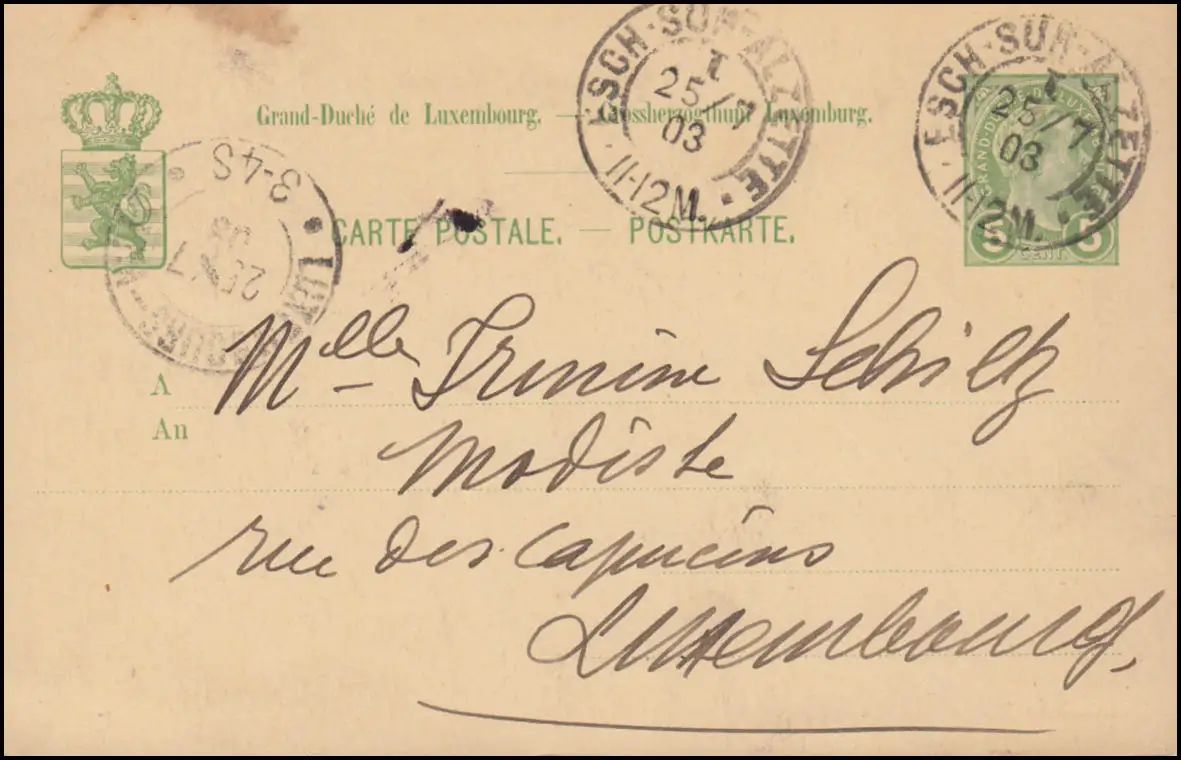 Grand-Duché de Luxembourg. — Grossherzogthum Luxemburg.
CARTE POSTALE. — POSTKARTE.
ESCH-SUR-ALZETTE
25/7
03
11-12M.
ESCH-SUR-ALZETTE
25/7
03
11-12M.
5 CENT. 5
3-4S
25 7
A
An
Mlle Irmine Schiltz
Modiste
rue des Capucins
Luxembourg.